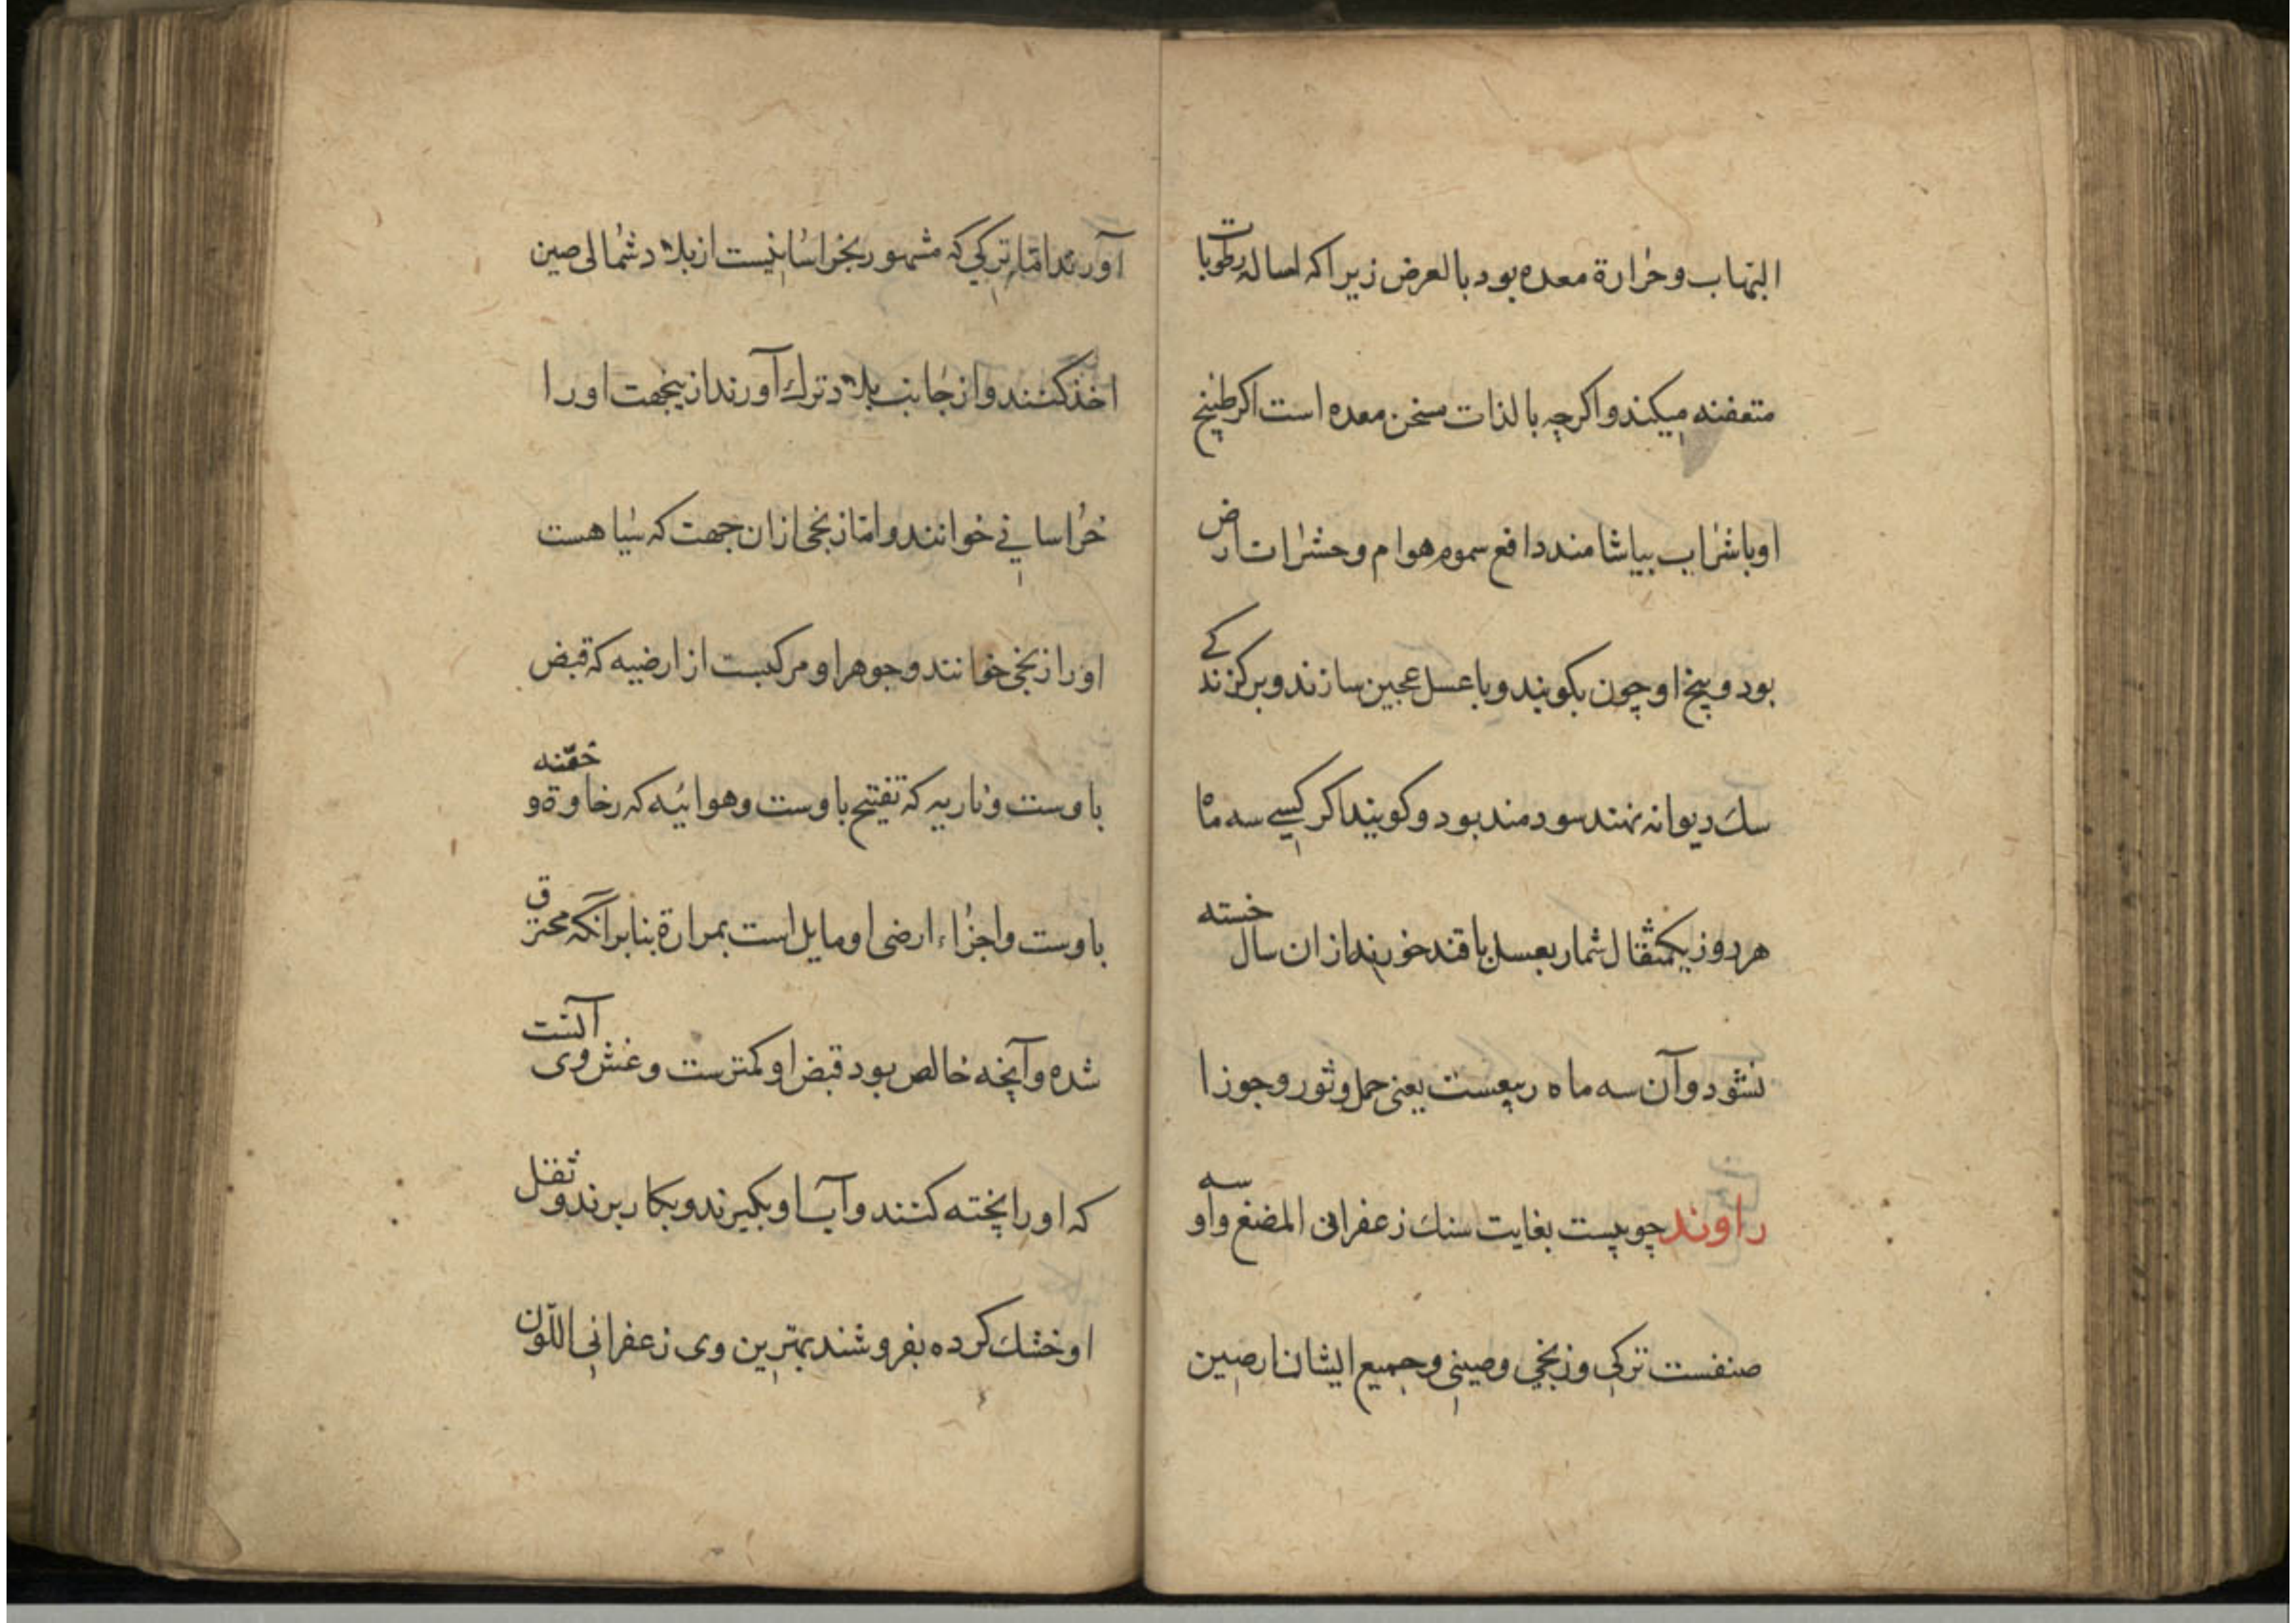 التهاب و حرارة معده بود بالعرض زیرا که اساله رطوبات
متعفنه میکند و اکرچه بالذات مسخن معده است اکر طبیخ
او با شراب بیاشامند دافع سموم هوام و حشرات ارض
بود و بیخ او چون بکوبند و با عسل عجین سازند و بر کزندکی
سك دیوانه نهند سودمند بود و کویند اکر کسی سه ماه
هر روز یکمثقال شمار بعسل یا قند خورند از ان سال خسته
نشود و آن سه ماه ربیعست یعنی حمل و ثور و جوزا
راوند چوبیست بغایت سنك زعفرانی المضغ و او سه
صنفست ترکی و زنجی و صینی و جمیع ایشان از صین
آورند اما ترکی که مشهور بخراسانیست از بلاد شمالی صین
اخذ کنند و از جانب بلاد ترك آورند ازینجهت او را
خراسانی خوانند و اما زنجی ازان جهت که سیاهست
او را زنجی خوانند و جوهر او مرکبست از ارضیه که قبض
باوست و ناریه که تفتیح باوست و هوائیه که رخاوة و خفته
باوست و اجزاء ارضی او مایل است بمرارة بنابر آنکه محترق
شده و آنچه خالص بود قبض او کمترست و غش وی آنست
که او را پخته کنند و آب او بکیرند و بکار برند و ثقل
او خشك کرده بفروشند بهترین وی زعفرانی اللون